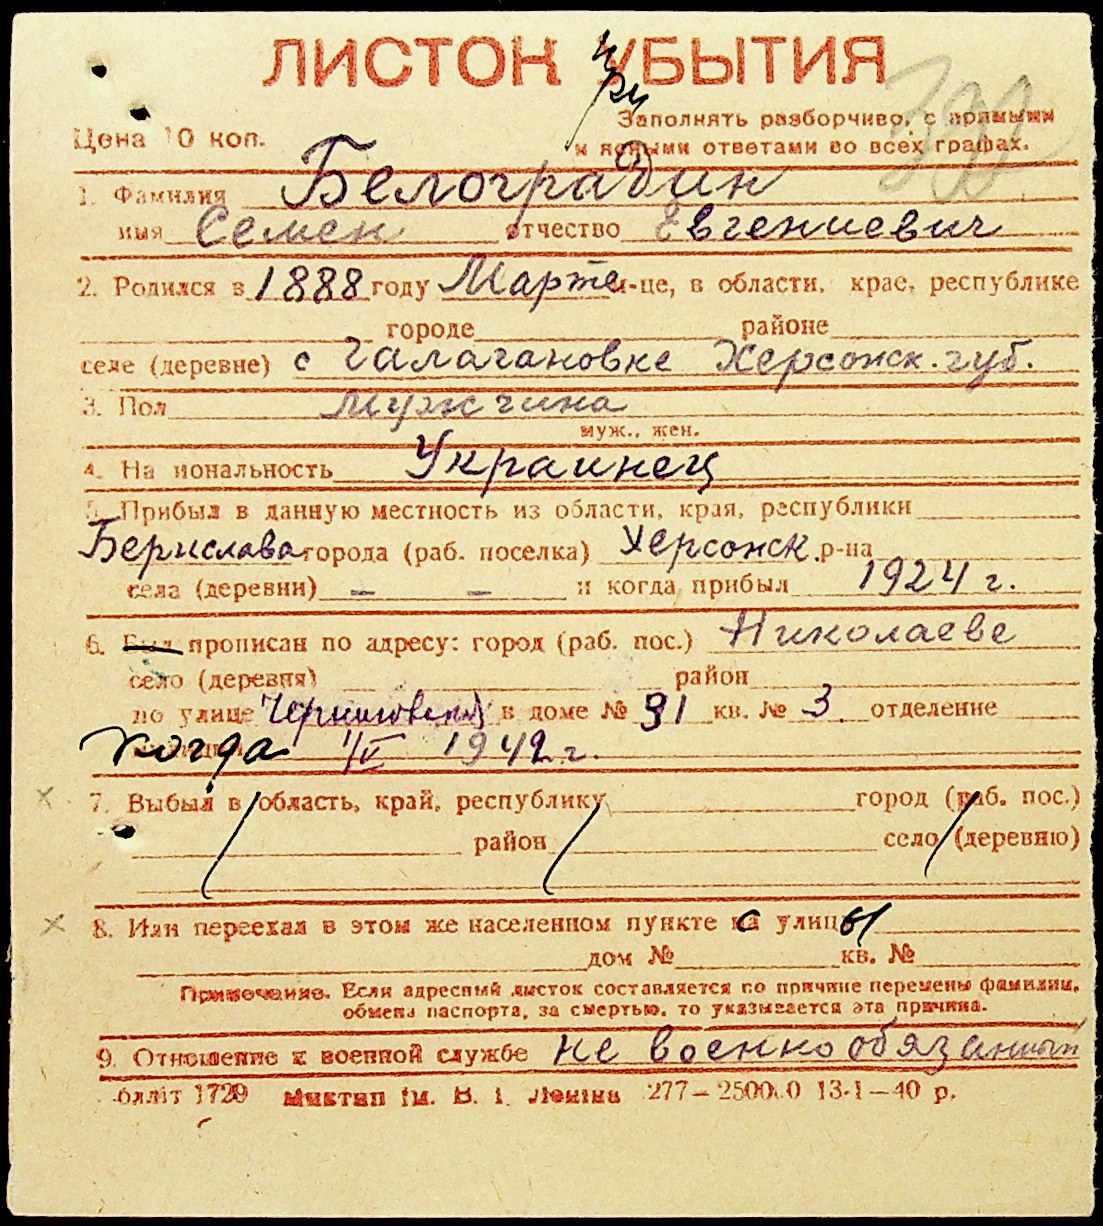 ЛИСТОК УБЫТИЯ
при
Заполнять разборчиво, с прямыми
Цена 10 коп.
и ясными ответами во всех графах.
1. Фамилия Белоградин
имя Семен отчество Евгениевич
2. Родился в 1888 году Марте м-це, в области, крае, республике
городе районе
селе (деревне) с Галагановке Херсонск. губ.
3. Пол Мужчина
муж., жен.
4. Национальность Украинец
5. Прибыл в данную местность из области, края, республики
Берислава города (раб. поселка) Херсонск. р-на
села (деревни) – – и когда прибыл 1924 г.
6. Был прописан по адресу: город (раб. пос.) Николаеве
село (деревня) район
по улице Черниговской в доме № 91 кв. № 3 отделение
когда 1/V 1942 г.
7. Выбыл в область, край, республику город (раб. пос.)
район село (деревню)
8. Или переехал в этом же населенном пункте с улицы
дом № кв. №
Примечание. Если адресный листок составляется по причине перемены фамилии,
обмена паспорта, за смертью, то указывается эта причина.
9. Отношение к военной службе не военнообязанный
обліт 1729 Миктип ім. В. І. Леніна 277—250000 13-1—40 р.